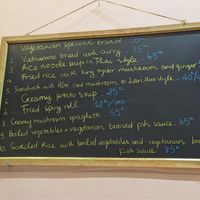 1. Vegetarian special bread
2. Vietnamese bread with curry 35k
3. Rice noodle soup in Thai style 45k
4. Fried rice with king oyster mushroom and ginger
5. Sandwich with Pâté and mushroom
6. Creamy potato soup 25k
7. Fried spring roll 12k/pcs
8. Creamy mushroom spaghetti 55k
9. Boiled vegetables + vegetarian braised fish sauce 65k
10. Scorched Rice with boiled vegetables and vegetarian
Fish sauce 85k